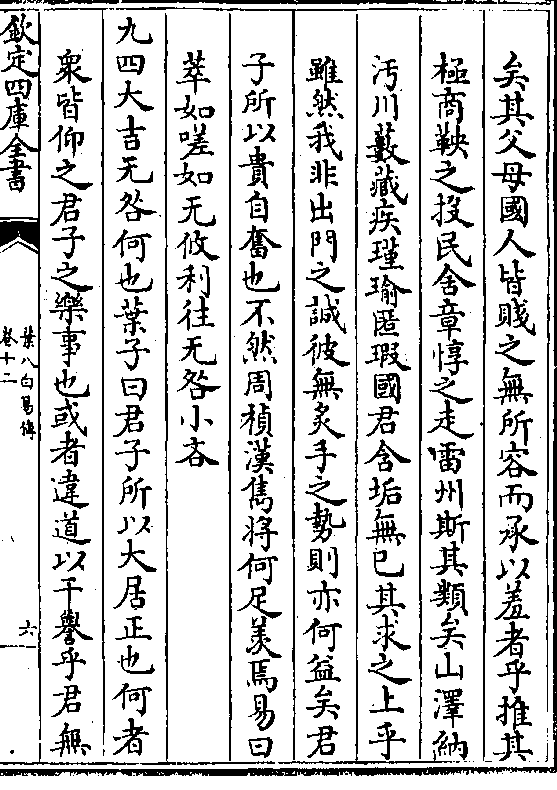 矣其父母國人皆賤之無所容而承以羞者乎推其
極商鞅之投民舍章惇之走雷州斯其類矣山澤納
汚川藪藏疾瑾瑜匿瑕國君含垢無已其求之上乎
雖然我非出門之誠彼無炙手之勢則亦何益矣君
子所以貴自奮也不然周楨漢雋將何足羨焉易曰
萃如嗟如无攸利往无咎小吝
九四大吉无咎何也葉子曰君子所以大居正也何者
衆皆仰之君子之樂事也或者違道以干譽乎君無
欽定四庫全書
葉八白易傳
卷十二
六